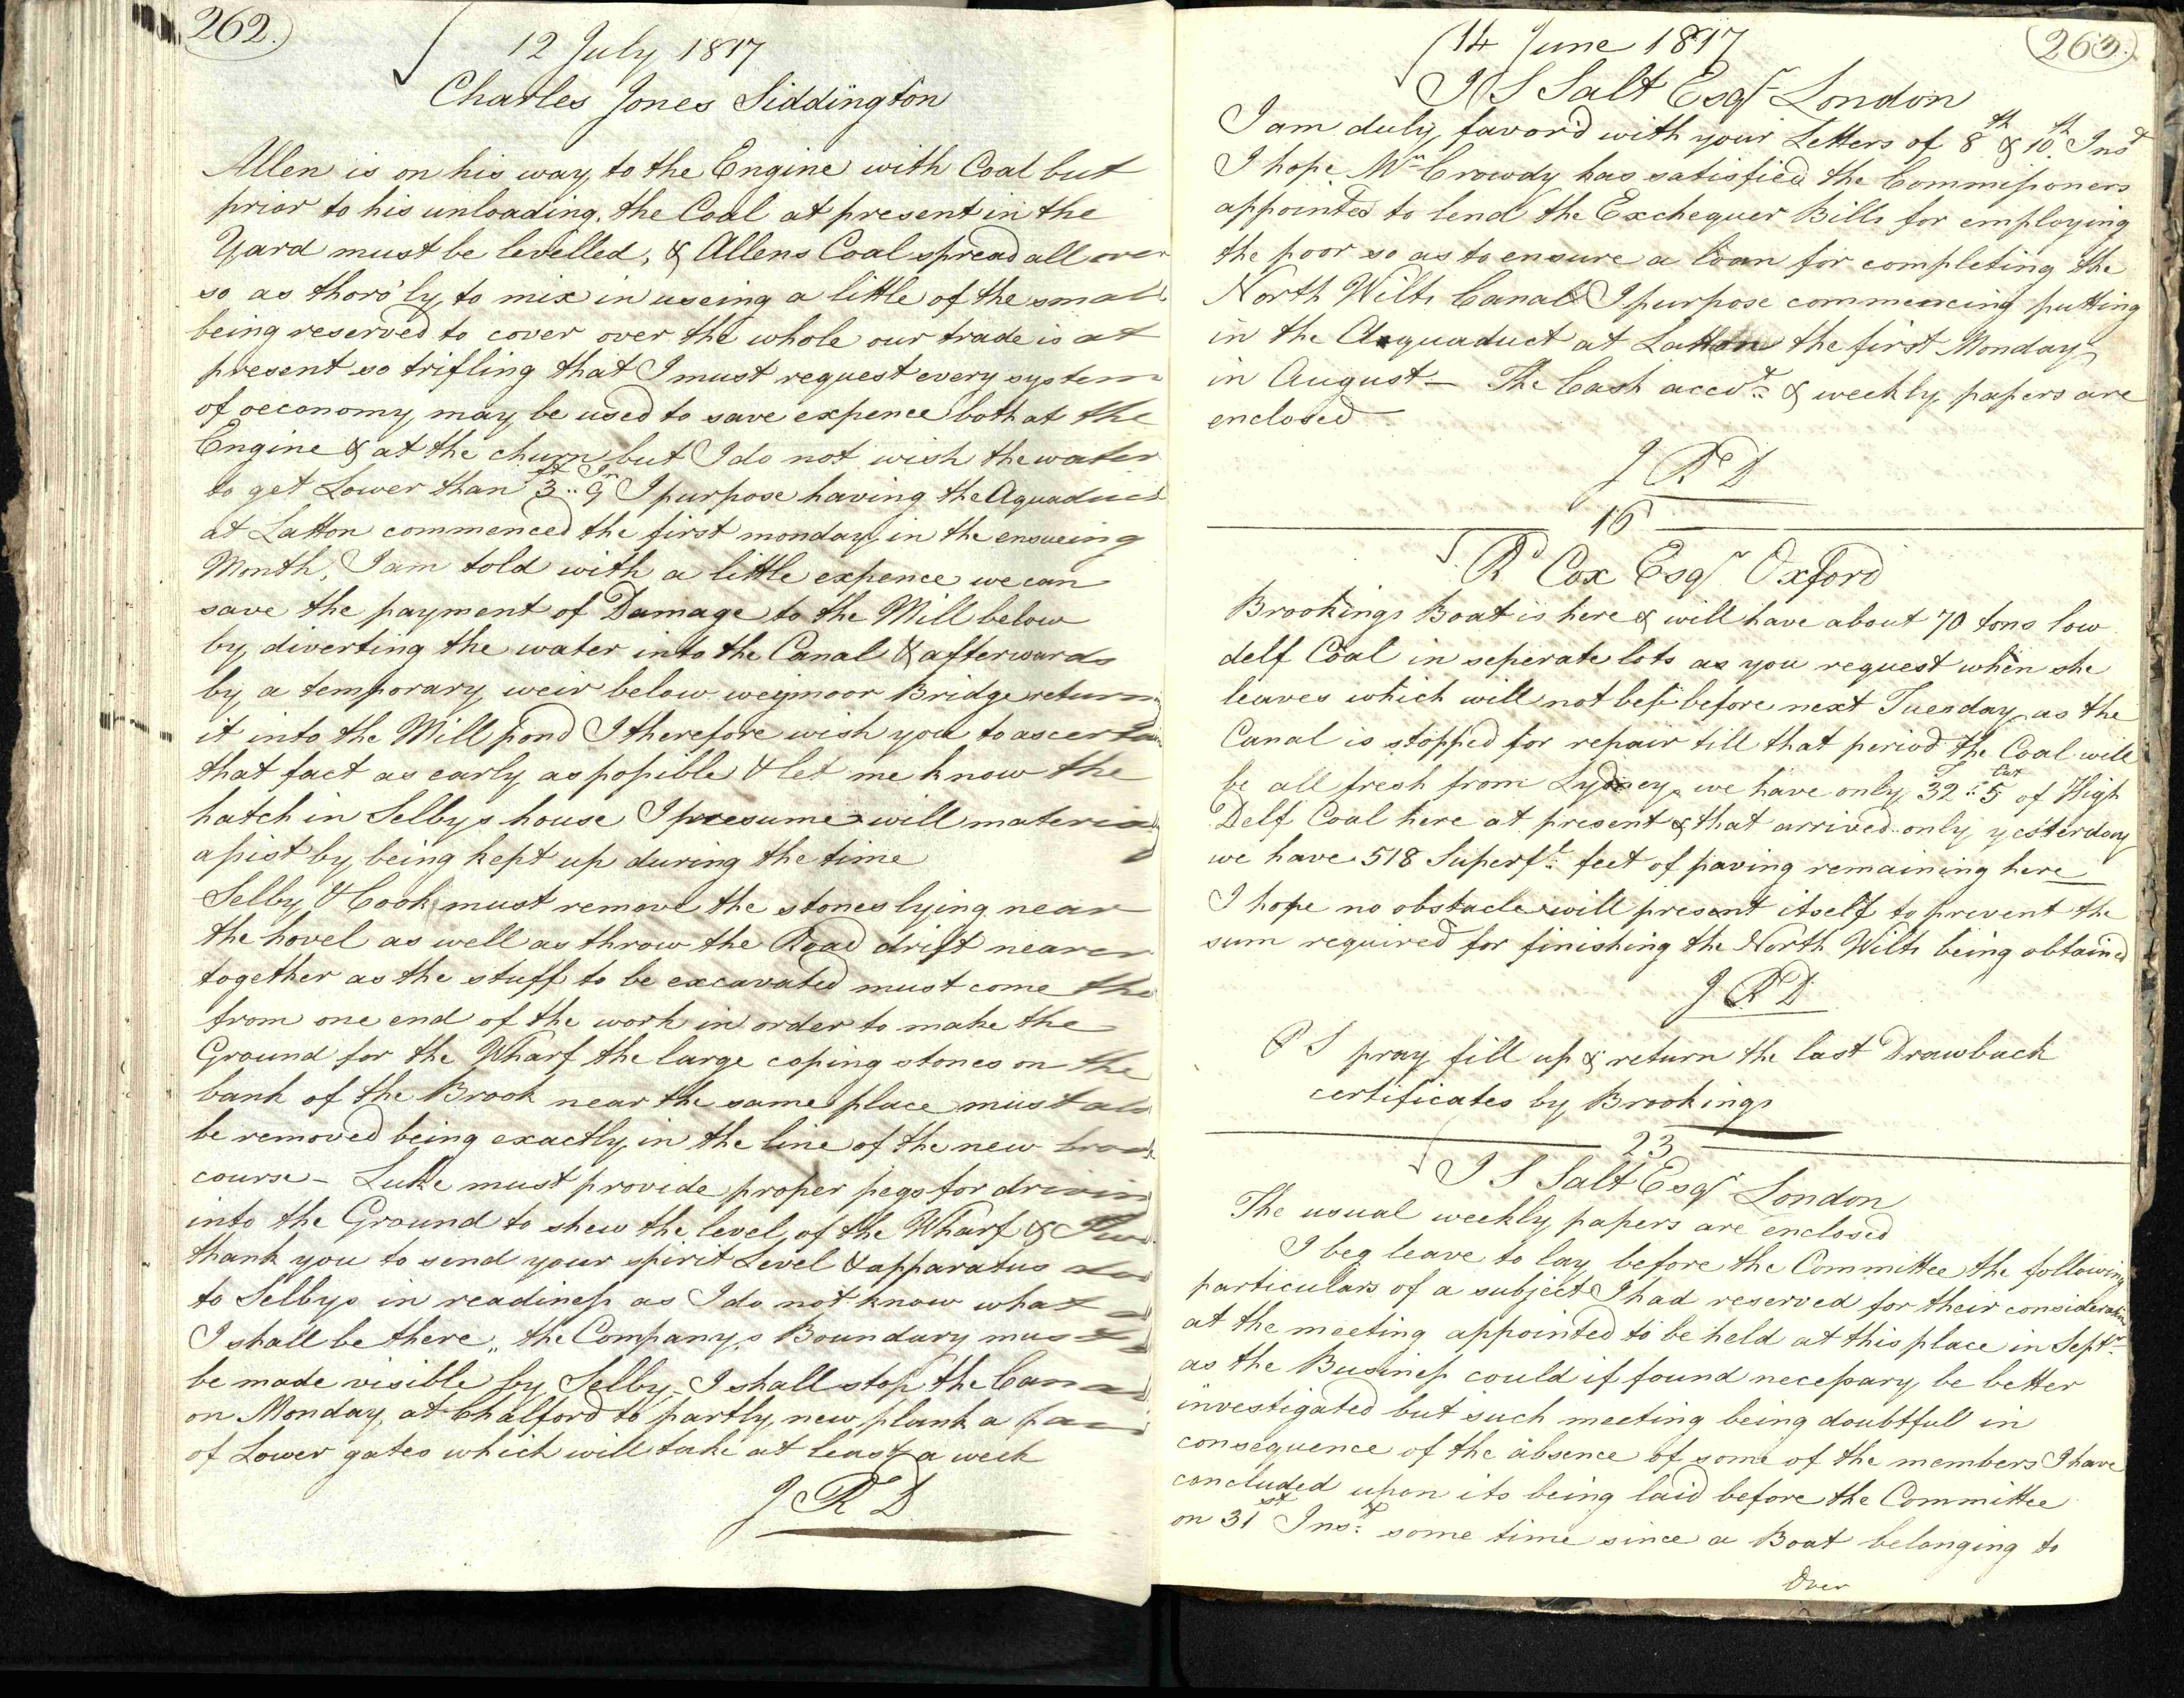 262.
12 July 1817
Charles Jones Siddington
Allen is on his way to the Engine with Coal but
prior to his unloading, the Coal at present in the
Yard must be levelled, & Allens Coal spread all over
so as thoro'ly to mix in useing a little of the small
being reserved to cover over the whole our trade is at
present so trifling that I must request every system
of oeconomy may be used to save expence both at the
Engine & at the churn but I do not wish the water
to get Lower than 3ft..9In I purpose having the Aquaduct
at Latton commenced the first monday in the ensueing
Month, I am told with a little expence we can
save the payment of Damage to the Mill below
by diverting the water into the Canal & afterwards
by a temporary weir below weymoor Bridge return
it into the Mill pond I therefore wish you to ascertain
that fact as early as possible & let me know the
hatch in Selbys house I presume will materially
assist by being kept up during the time
Selby & Cook must remove the stones lying near
the hovel as well as throw the Road drift nearer
together as the stuff to be excavated must come
from one end of the work in order to make the
Ground for the Wharf the large coping stones on the
bank of the Brook near the same place must also
be removed being exactly in the line of the new brook
course - Luke must provide proper pegs for driving
into the Ground to shew the level of the Wharf &
thank you to send your spirit Level & apparatus
to Selbys in readiness as I do not know what
I shall be there,, the Companys Boundary must
be made visible by Selby - I shall stop the Canal
on Monday at Chalford to partly new plank a pair
of Lower gates which will take at least a week
J R D
263.
14 June 1817
J S Salt Esqr London
I am duly favor'd with your Letters of 8th & 10th Inst
I hope Mr Crowdy has satisfied the Commissioners
appointed to lend the Exchequer Bills for employing
the poor so as to ensure a loan for completing the
North Wilts Canal I purpose commencing putting
in the Aquaduct at Latton the first Monday
in August - The Cash accots & weekly papers are
enclosed
J R D
16
Rd Cox Esqr Oxford
Brookings Boat is here & will have about 70 tons low
delf Coal in seperate lots as you request when she
leaves which will not be before next Tuesday as the
Canal is stopped for repair till that period the Coal will
be all fresh from Lydney. we have only 32T:5Cwt of High
Delf Coal here at present & that arrived only yesterday
we have 518 Superfl feet of paving remaining here
I hope no obstacle will present itself to prevent the
sum required for finishing the North Wilts being obtained
J R D
P S pray fill up & return the last Drawback
certificates by Brookings
23
J S Salt Esqr London
The usual weekly papers are enclosed
I beg leave to lay before the Committee the following
particulars of a subject I had reserved for their consideration
at the meeting appointed to be held at this place in Septr
as the Business could if found necessary be better
investigated but such meeting being doubtful in
consequence of the absence of some of the members I have
concluded upon its being laid before the Committee
on 31st Inst some time since a Boat belonging to
Over